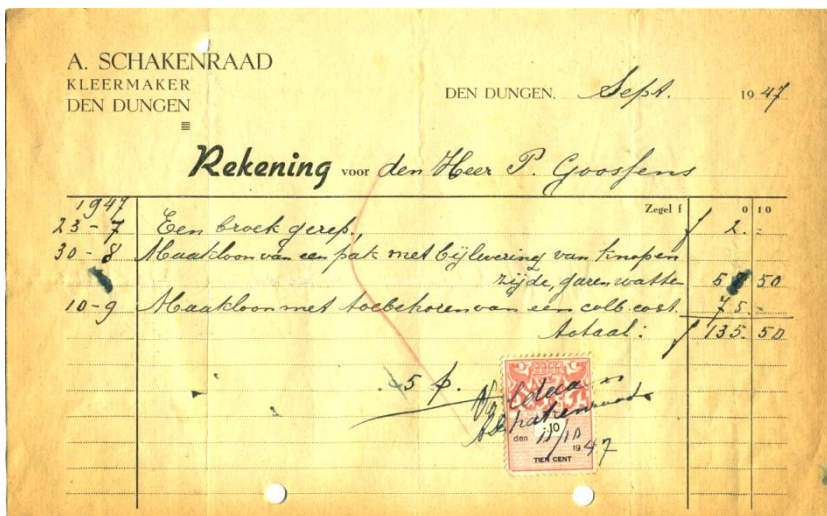 A. SCHAKENRAAD
KLEERMAKER
DEN DUNGEN
DEN DUNGEN, Sept. 1947
Rekening voor den Heer P. Goossens
1947 Zegel f 0 10
23-7 Een broek gerep. f 2.-
30-8 Maakloon van een pak met bijlevering van knopen
zijde, garen watte 50
10-9 Maakloon met toebehoren van een colb. cost. 75.-
totaal: f 135.50
5 p.
Voldaan
Schakenraad
10
den 11/10 1947
TIEN CENT